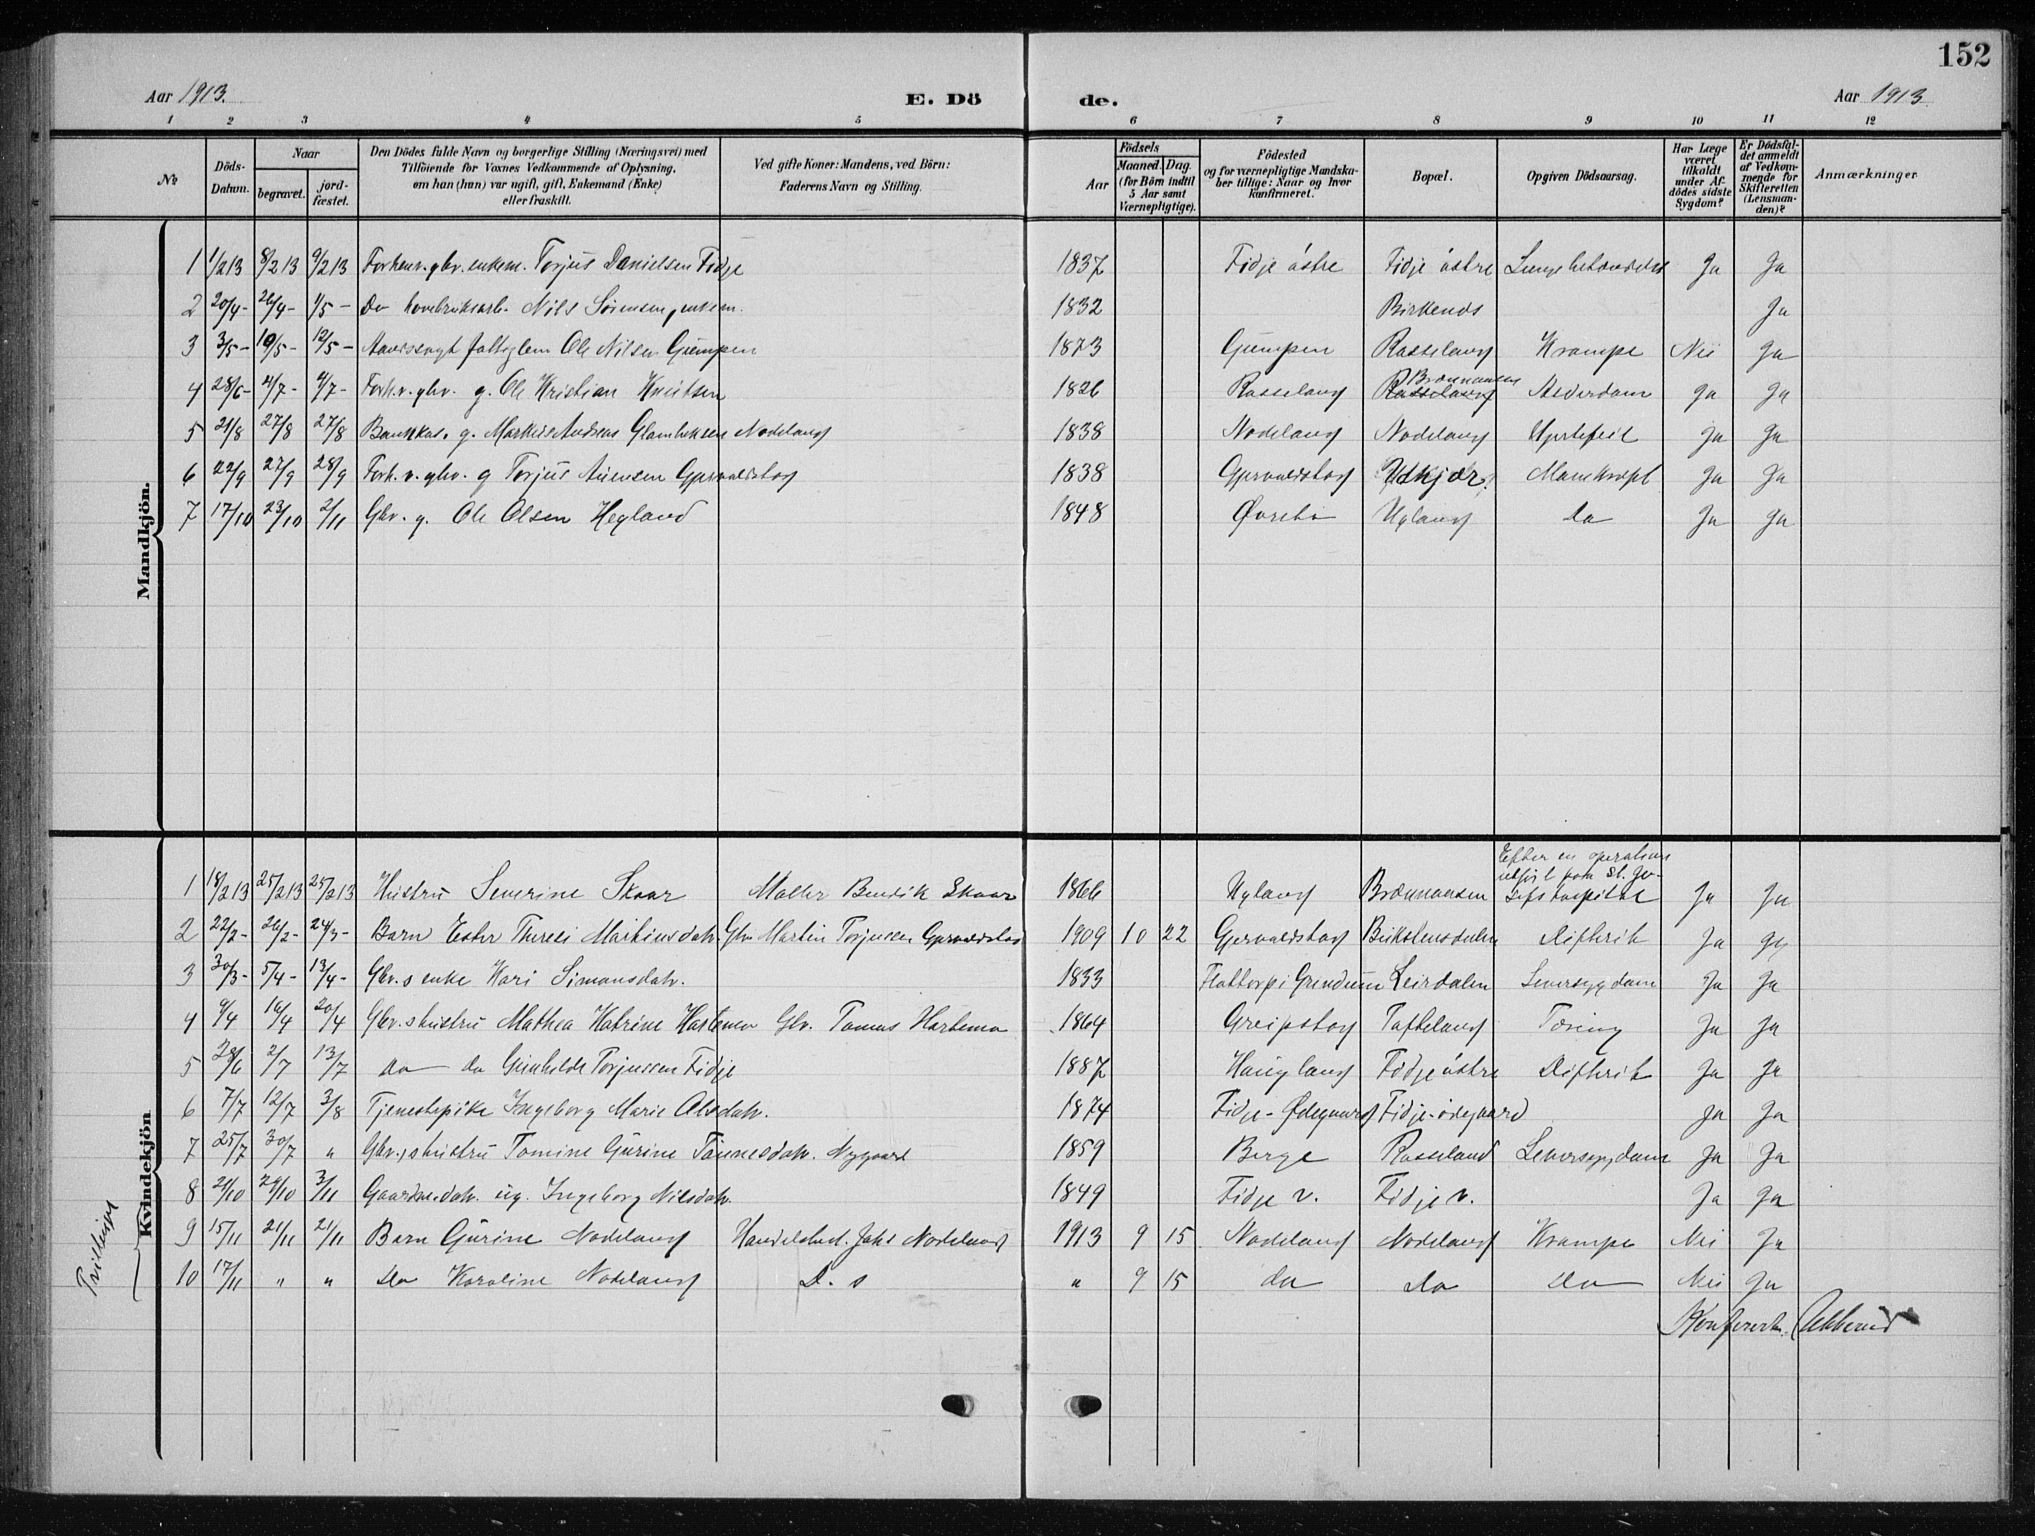 152
Aar 1913. E. Dö de. Aar 1913
1 2 3 4 5 6 7 8 9 10 11 12
No Döds-Datum. Naar begravet. jord-fæstet. Den Dödes fulde Navn og borgerlige Stilling (Næringsvei) med Tilföiende for Voxnes Vedkommende af Oplysning, om han (hun) var ugift, gift, Enkemand (Enke) eller fraskilt. Ved gifte Koner: Mandens, ved Börn: Faderens Navn og Stilling. Födsels Aar Maaned. Dag. (for Börn indtil 5 Aar samt Værnepligtige). Födested og for værnepligtige Mandskaber tillige: Naar og hvor konfirmeret. Bopæl. Opgiven Dödsaarsag. Har Læge været tilkaldt under Afdödes sidste Sygdom? Er Dödsfaldet anmeldt af Vedkommende for Skifteretten (Lensmanden)? Anmærkninger
Mandkjön.
1 1/2 13 8/2 13 9/2 13 Forhenv. gbr. enkem. Torjus Danielsen Fidje 1837 Fidje östre Fidje östre Lungebetændelse Ja Ja
2 20/4 - 26/4 - 1/5 - Do Nils Sørensen, enkem. 1832 Birkenes Ja
3 3/5 - 10/5 - 12/5 - Ole Nilsen Gumpen 1873 Gumpen Rosseland Krampe Nei Ja
4 28/6 - 4/7 - 4/7 - Forh. v. gbr. g. Ole Kristian Knutsen 1826 Rosseland Rosseland Brønnaasen Alderdom Ja Ja
5 21/8 27/8 27/8 Bankkas. g. Andreas Nodeland 1838 Nodeland Nodeland Hjertefeil Ja Ja
6 22/9 27/9 28/9 Forh. v. gbr. g Torjus Gjervoldstad 1838 Gjervoldstad Udkjær Mavekræft Ja Ja
7 17/10 23/10 2/11 Gbr. g. Ole Olsen Hegland 1848 Øvrebø Uglans Do Ja Ja
Kvindekjön
1 18/2 13 25/2 13 25/2 13 Hustru Severine Skaar Maler Bendik Skaar 1866 Uglans Brønnaasen Efter en operation utført paa St. Jo-sefs hospital Ja Ja
2 22/2 - 26/2 - 24/3 - Barn Ester Therese Martinsdatr. Gbr Martin Torjussen Gjervoldstad 1909 10 22 Gjervoldstad Difterit Ja Ja
3 30/3 - 5/4 - 13/4 - Gbr.s enke Kari Simonsdatr. 1833 Flottorp i Grindum Leirdalen Leversygdom Ja Ja
4 9/4 16/4 20/4 Gbr.s hustru Mathea Katrine Hortemo Gbr. Tomas Hortemo 1864 Greipstad Tofteland Tæring Ja Ja
5 28/6 2/7 13/7 Do do Gunhilde Torjussen Fidje 1887 Haugland Fidje östre Difterit Ja Ja
6 7/7 12/7 3/8 Tjenestepike Ingeborg Marie Olsdatr. 1874 Fidje-Ødegaard Fidje-ødegaard Ja Ja
7 25/7 30/7 " Gbr.s hustru Tomine Gurine Tønnesdatr. Nygaard 1859 Berge Rosseland Leversygdom Ja Ja
8 24/10 29/10 3/11 Gaardm.datr. ug. Ingeborg Nilsdatr. 1849 Fidje v. Fidje v. Ja Ja
9 15/11 21/11 21/11 Barn Gurine Nodeland Handelsbest. Jaks Nodeland 1913 9 15 Nodeland Nodeland Krampe Nei Ja
10 17/11 " " Do Karoline Nodeland D. s " 9 15 do Do Do Nei Ja
Tvillinger
Konfererts.